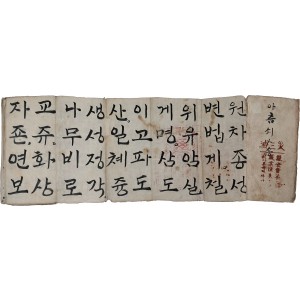 아츰
원차죵성
변법게쳘
위유악실
게명상도
이고파도
산일쳬즁
생성정각
나무비로
교쥬화상
자죤연보